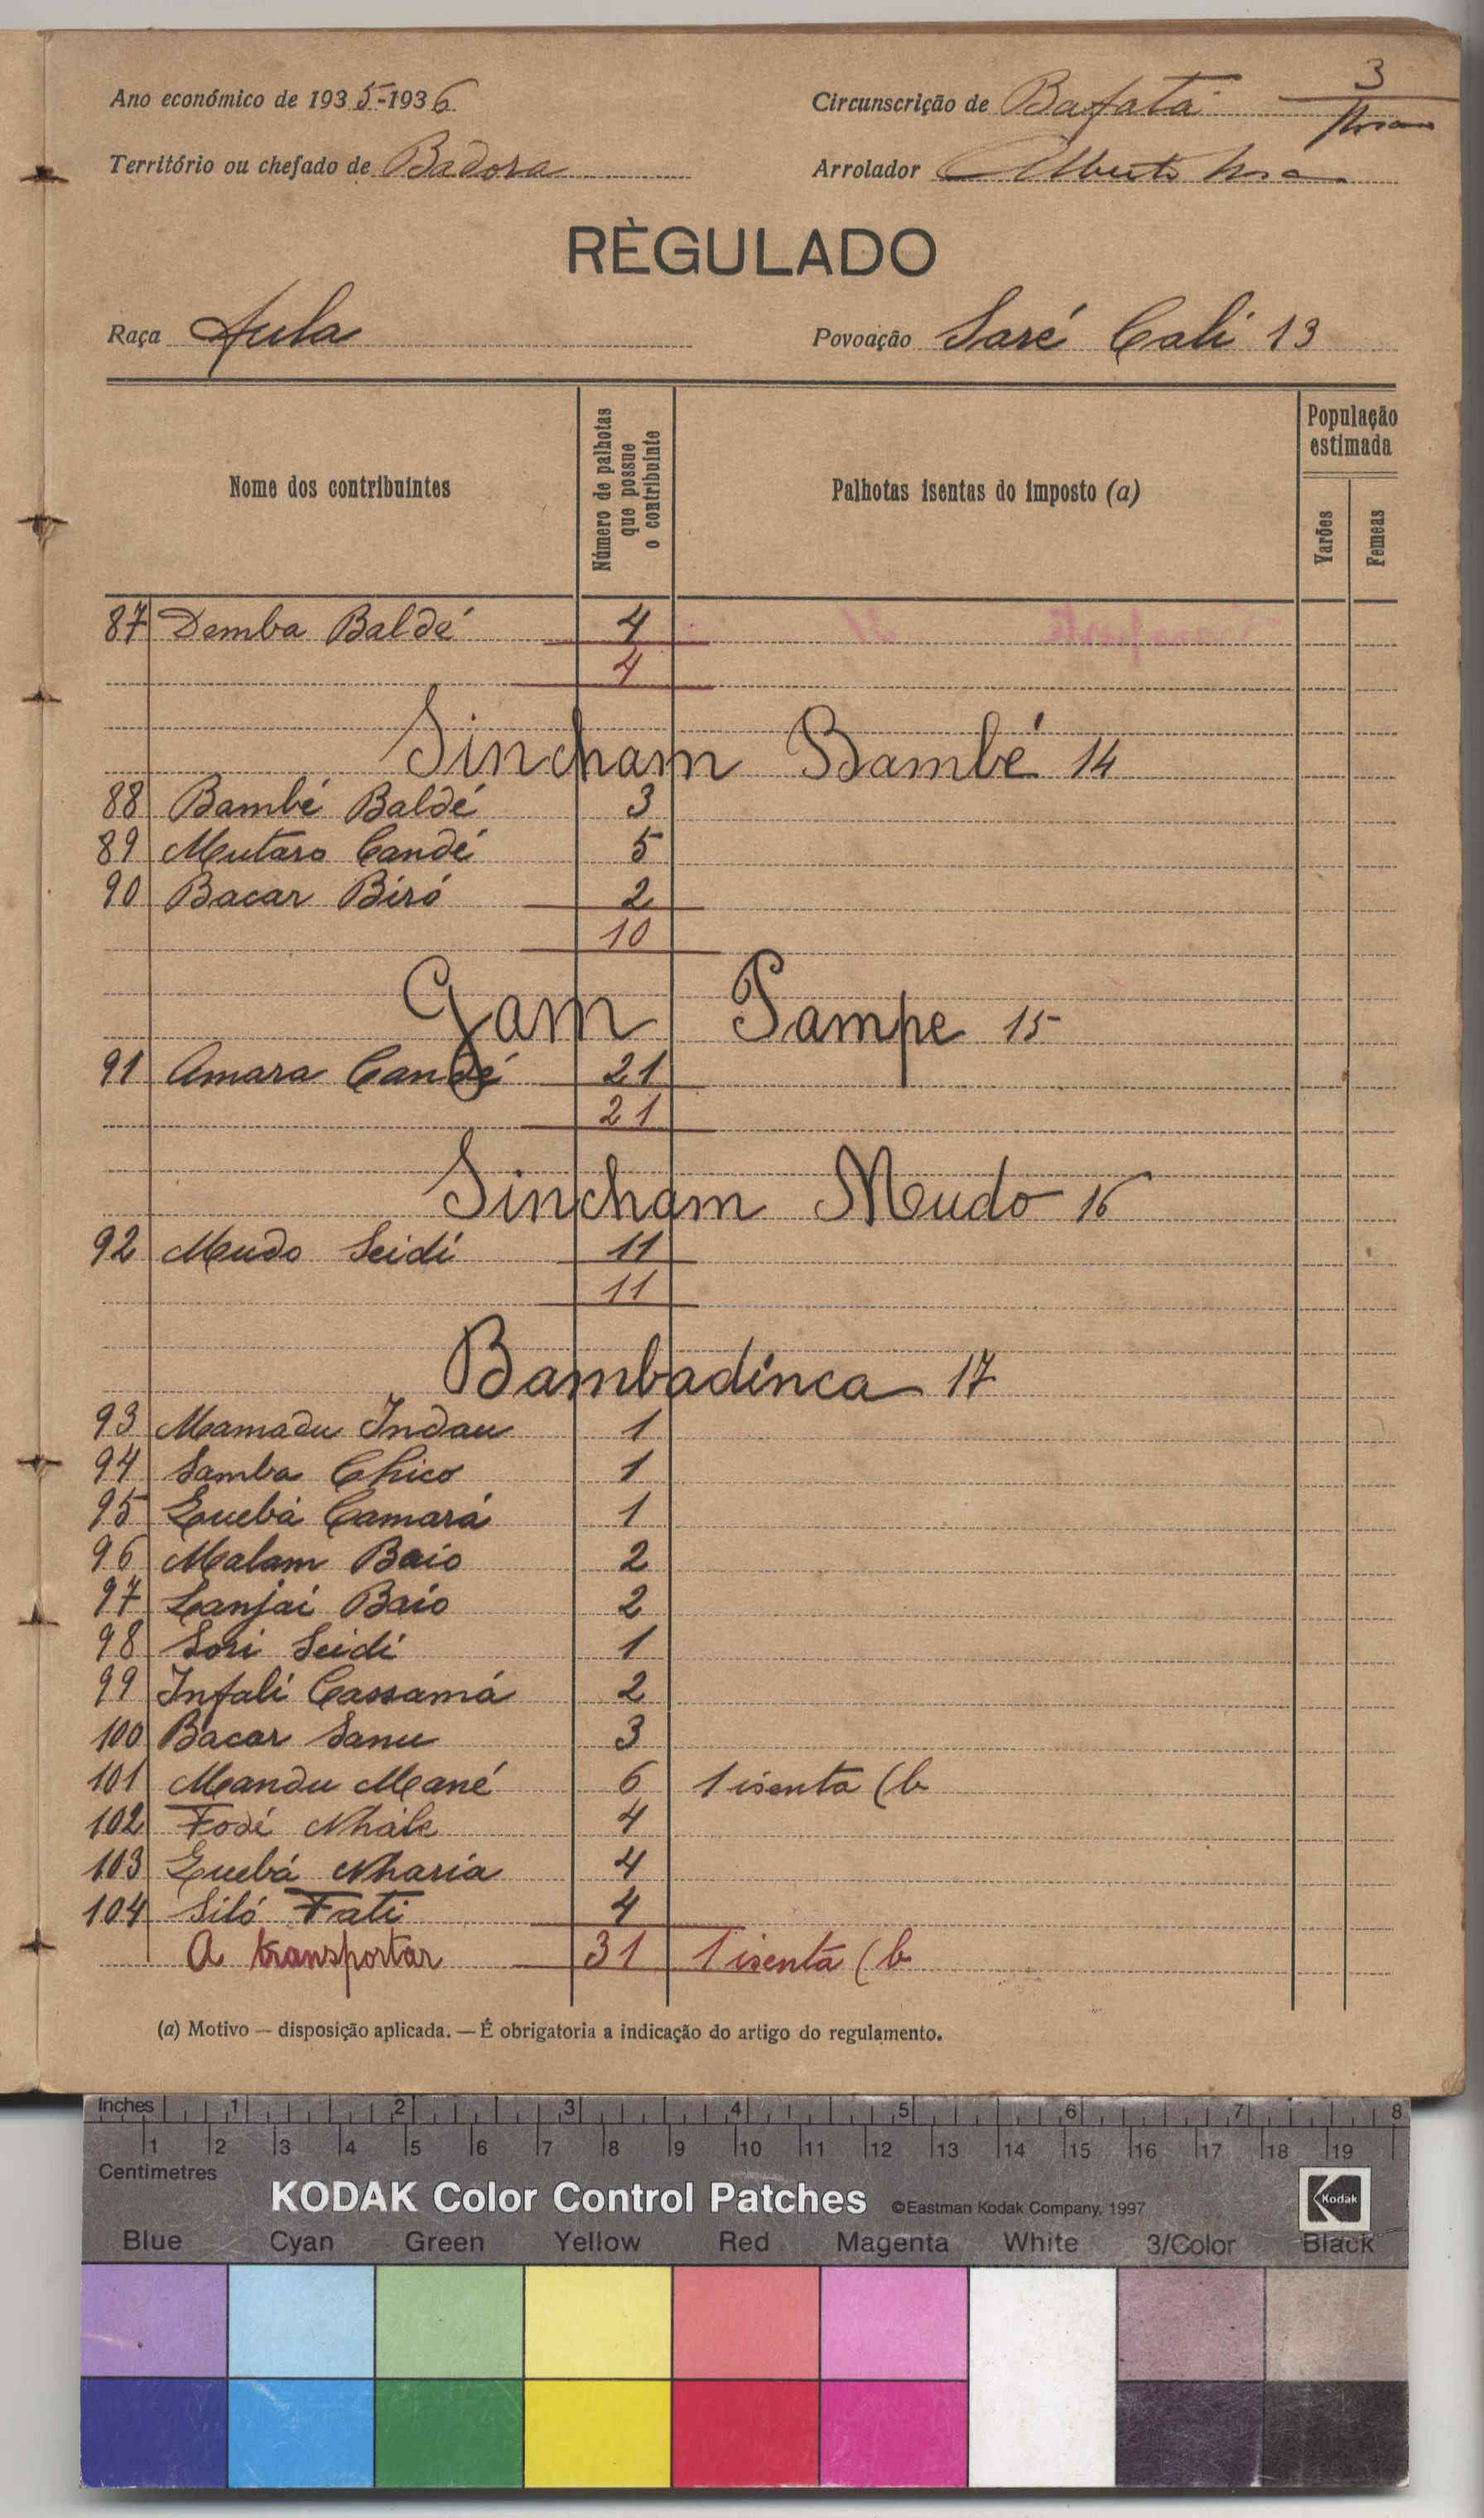 3
Ano económico de 1935-1936
Circunscrição de Bafatá
Território ou chefado de Badora
Arrolador Alberto
RÈGULADO
Raça Fula
Povoação Saré Cali 13
Nome dos contribuintes
Número de palhotas que possue o contribuinte
Palhotas isentas do imposto (a)
População estimada
Varões
Femeas
87 Demba Baldé 4
4
Sincham Bambé 14
88 Bambé Baldé 3
89 Mutaro Candé 5
90 Bacar Biró 2
10
Gam Pampe 15
91 Amara Candé 21
21
Sincham Meudo 16
92 Meudo Seidí 11
11
Bambadinca 17
93 Mamadu Indau 1
94 Samba Chico 1
95 Quebá Camará 1
96 Malam Baio 2
97 Lanjai Baio 2
98 Sori Seidi 1
99 Infali Cassamá 2
100 Bacar Sanu 3
101 Mandu Mané 6 1 isenta (b
102 Fodé 4
103 Quebá Nharia 4
104 Siló Fati 4
A transportar 31 1 isenta (b
(a) Motivo — disposição aplicada. — É obrigatoria a indicação do artigo do regulamento.
Inches 1 2 3 4 5 6 7 8
1 2 3 4 5 6 7 8 9 10 11 12 13 14 15 16 17 18 19
Centimetres
KODAK Color Control Patches ©Eastman Kodak Company, 1997 Kodak
Blue Cyan Green Yellow Red Magenta White 3/Color Black